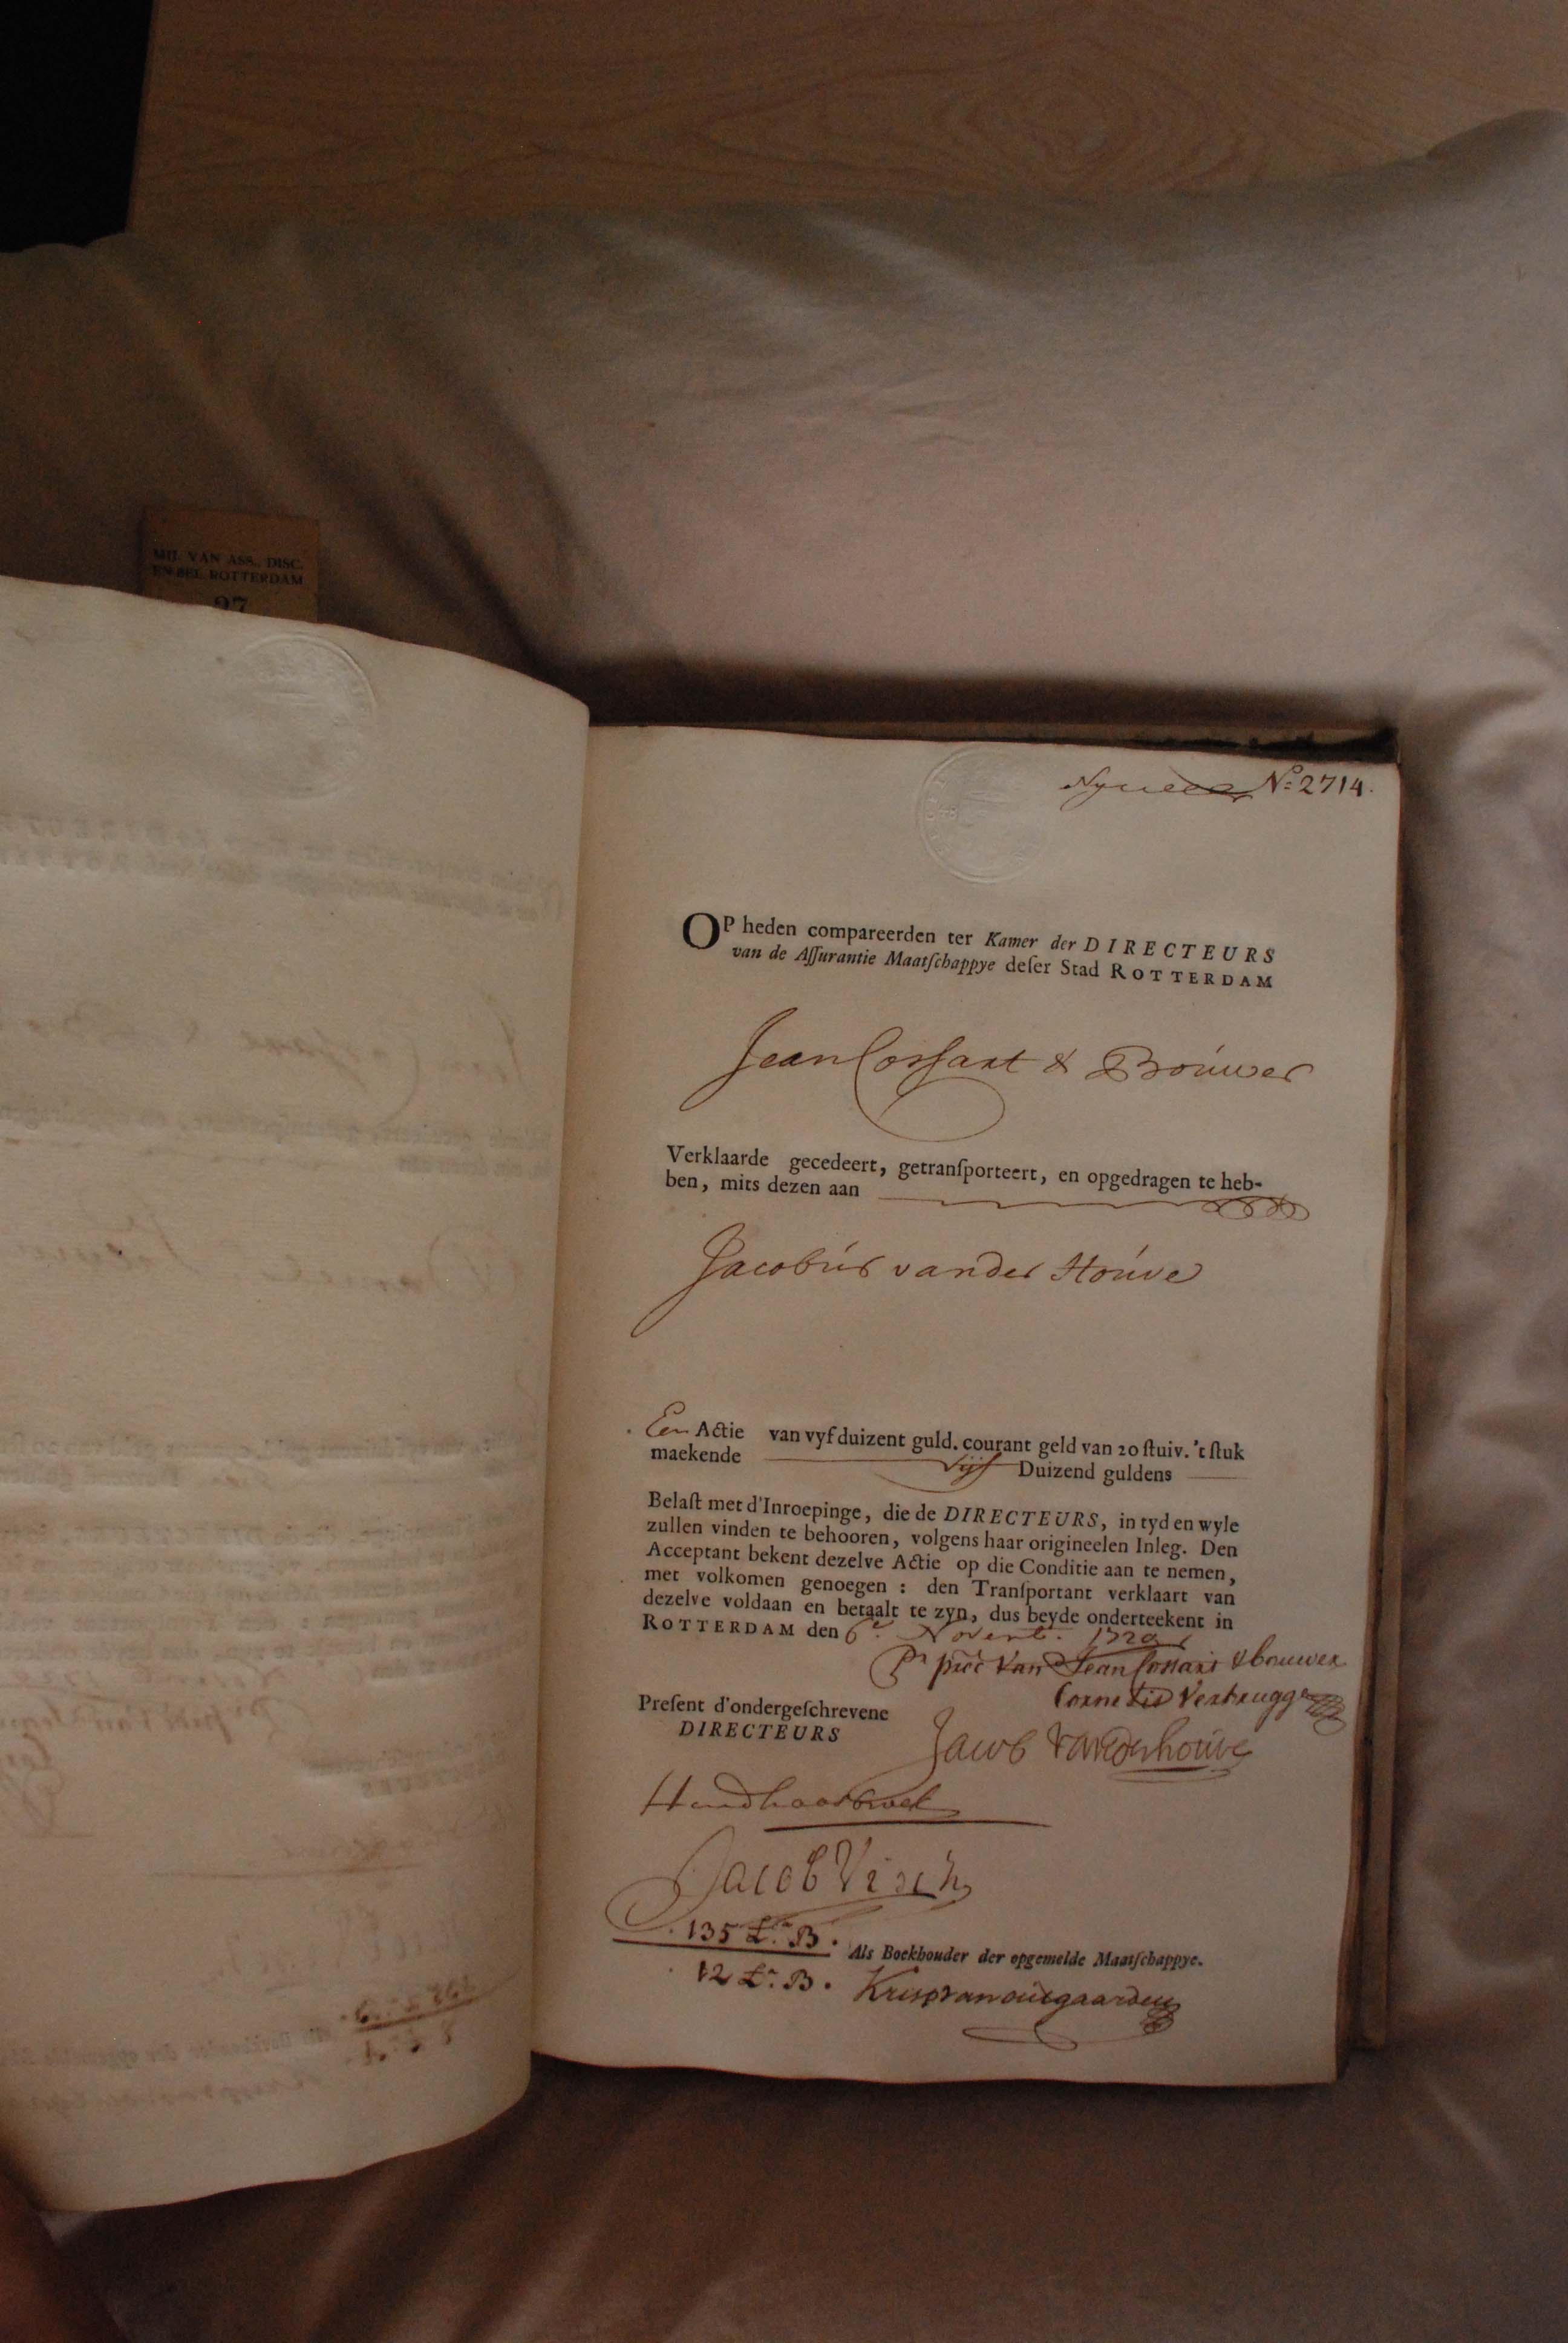 MIJ. VAN ASS., DISC.
EN BEL. ROTTERDAM
27
No: 2714.
OP heden compareerden ter Kamer der DIRECTEURS
van de Aſſurantie Maatſchappye deſer Stad ROTTERDAM
Jean Cossart & Bouwer
Verklaarde gecedeert, getranſporteert, en opgedragen te heb-
ben, mits dezen aan
Jacobus vander Houve
Een Actie van vyf duizent guld. courant geld van 20 ſtuiv. 't ſtuk
maekende Vijf Duizend guldens
Belaſt met d'Inroepinge, die de DIRECTEURS, in tyd en wyle
zullen vinden te behooren, volgens haar origineelen Inleg. Den
Acceptant bekent dezelve Actie op die Conditie aan te nemen,
met volkomen genoegen : den Tranſportant verklaart van
dezelve voldaan en betaalt te zyn, dus beyde onderteekent in
ROTTERDAM den 6e. Novemb. 1720
Pr proc van Jean Cossart & bouwer
Cornelis Verbrugge
Preſent d'ondergeſchrevene
DIRECTEURS
Jacob Vanderhouve
Jacob Visch
135 Lr. B.
Als Boekhouder der opgemelde Maatſchappye.
12 Lr. B.